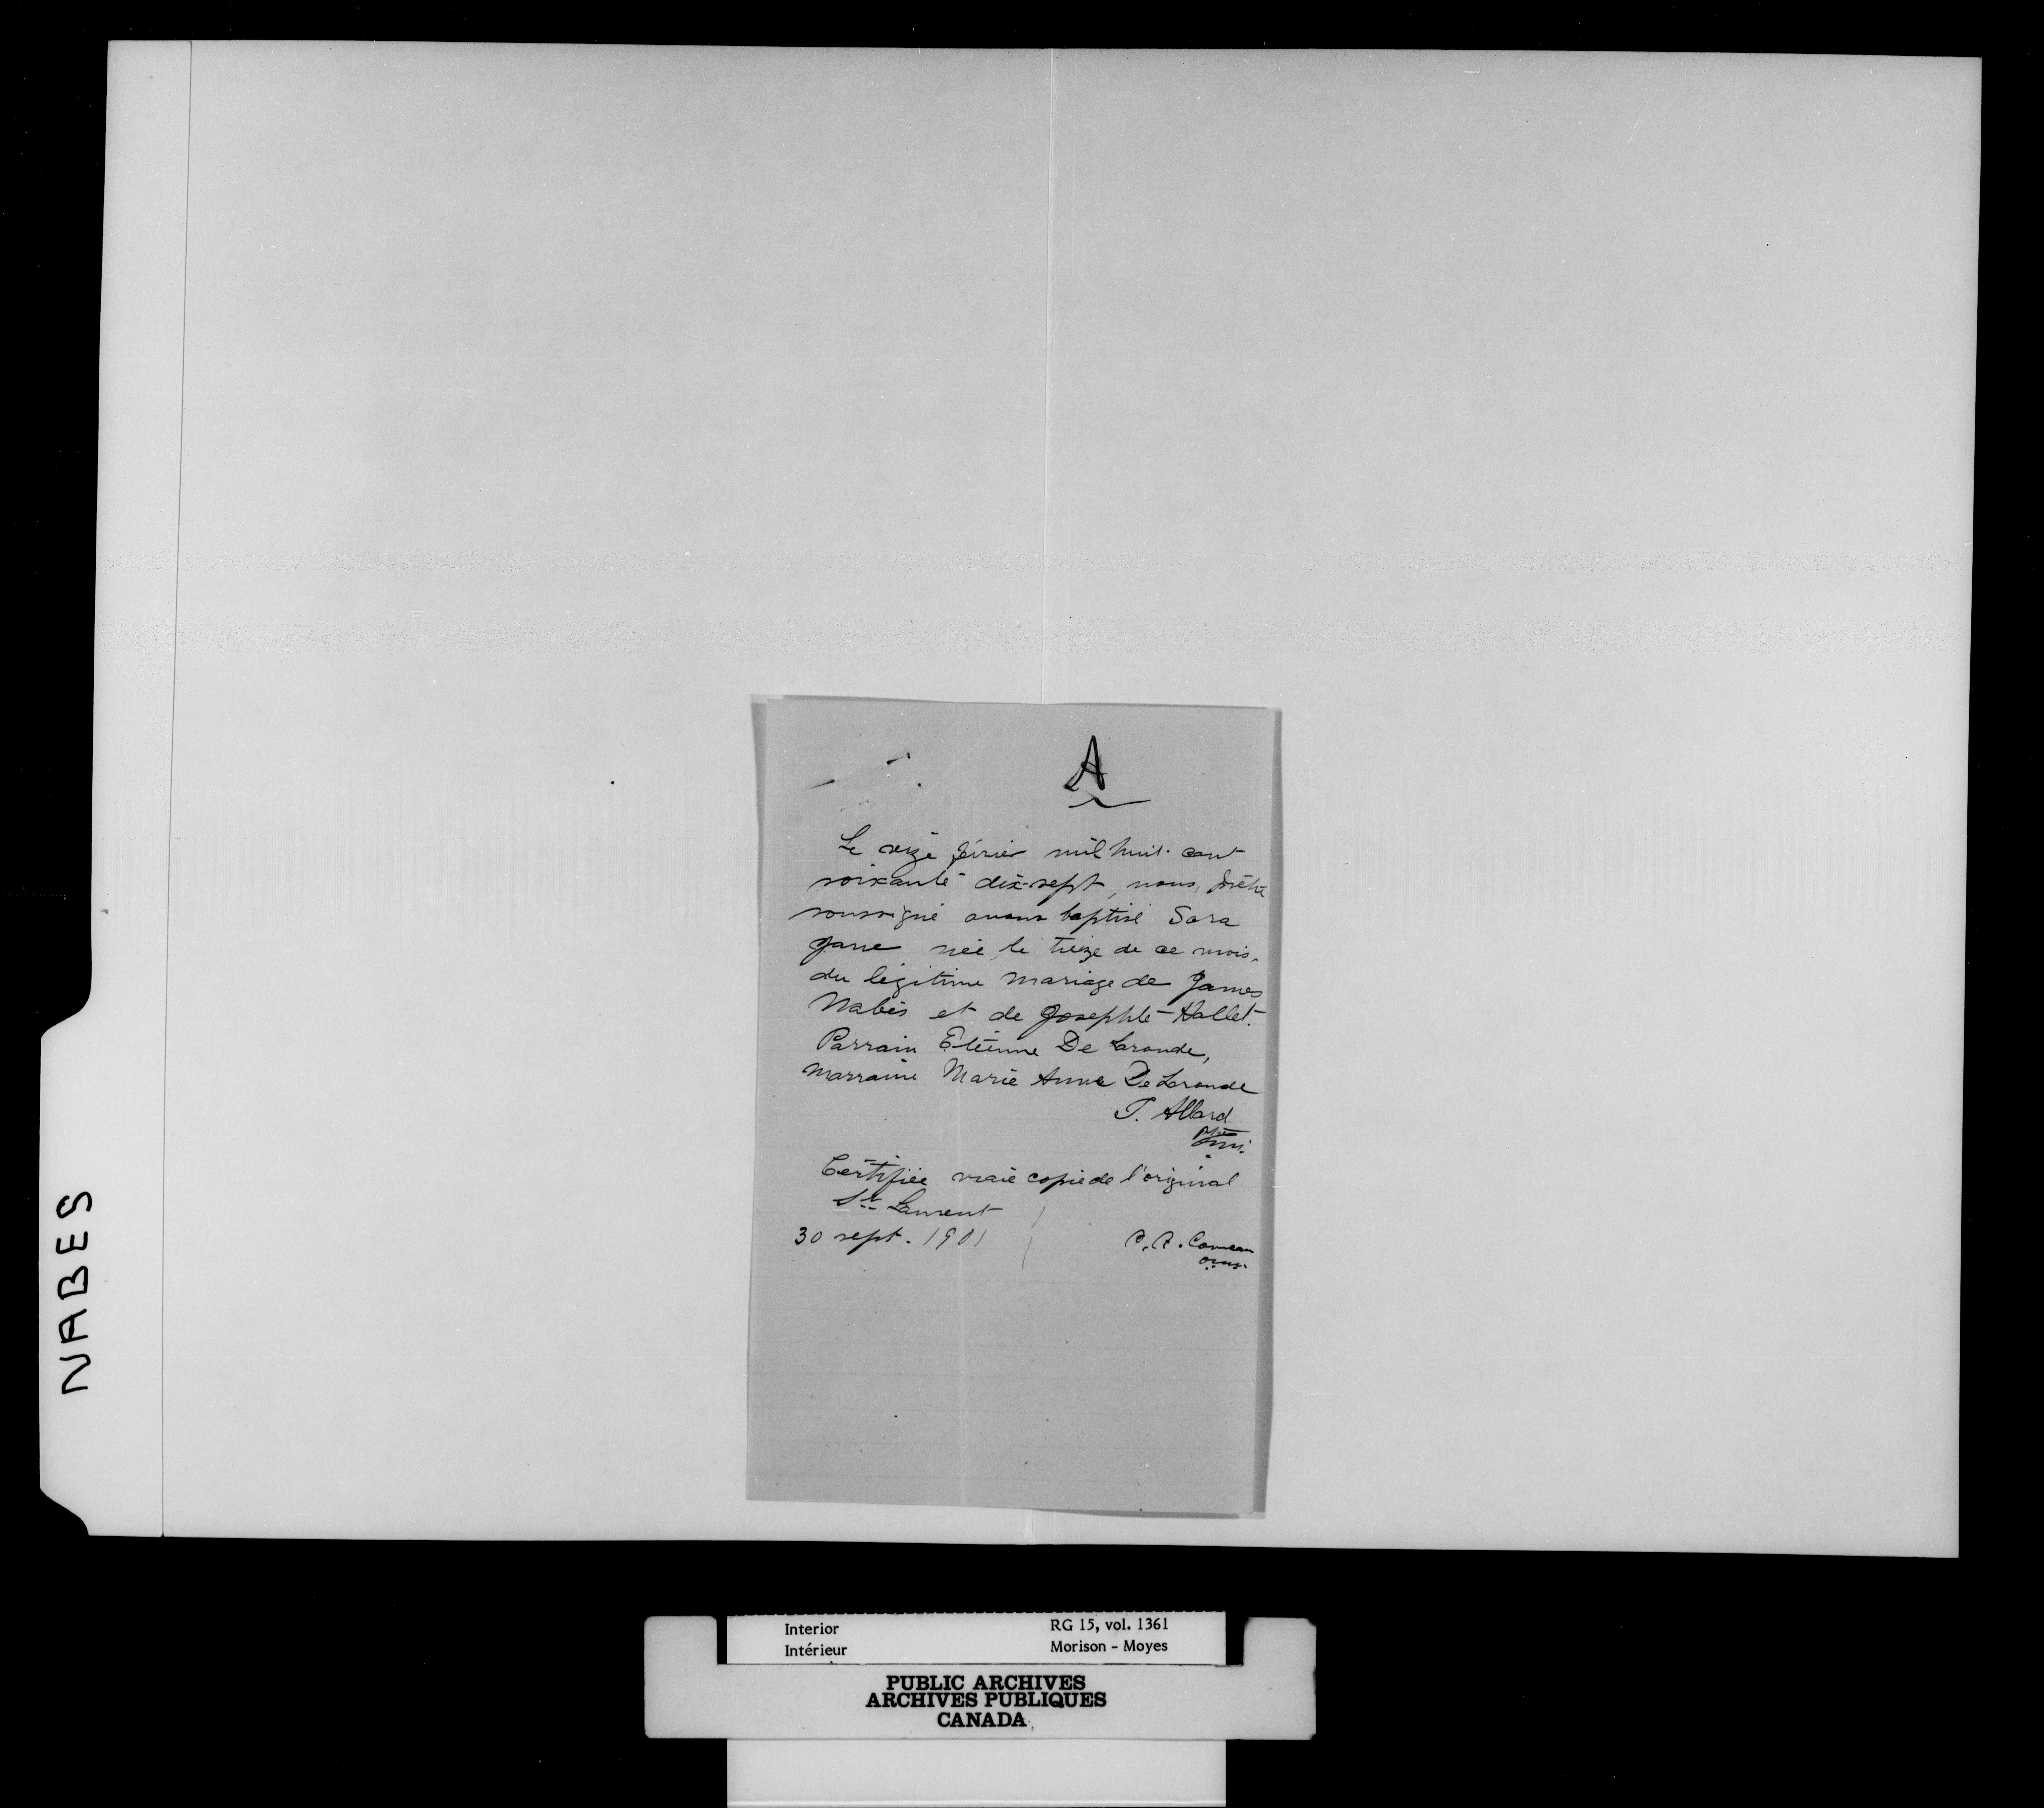 A
Le seize février mil huit cent
soixante dix-sept, nous, prêtre
soussigné avons baptisé Sara
Jane née le treize de ce mois,
du légitime mariage de James
Nabès et de Josephte Hallet.
Parrain Etienne De Laronde,
Marraine Marie Anne De Laronde
J. Allard
ptre
omi.
Certifiée vraie copie de l'original
St. Laurent
30 sept. 1901
C. A. Comeau
omi.
NABES
Interior
Intérieur
RG 15, vol. 1361
Morison - Moyes
PUBLIC ARCHIVES
ARCHIVES PUBLIQUES
CANADA